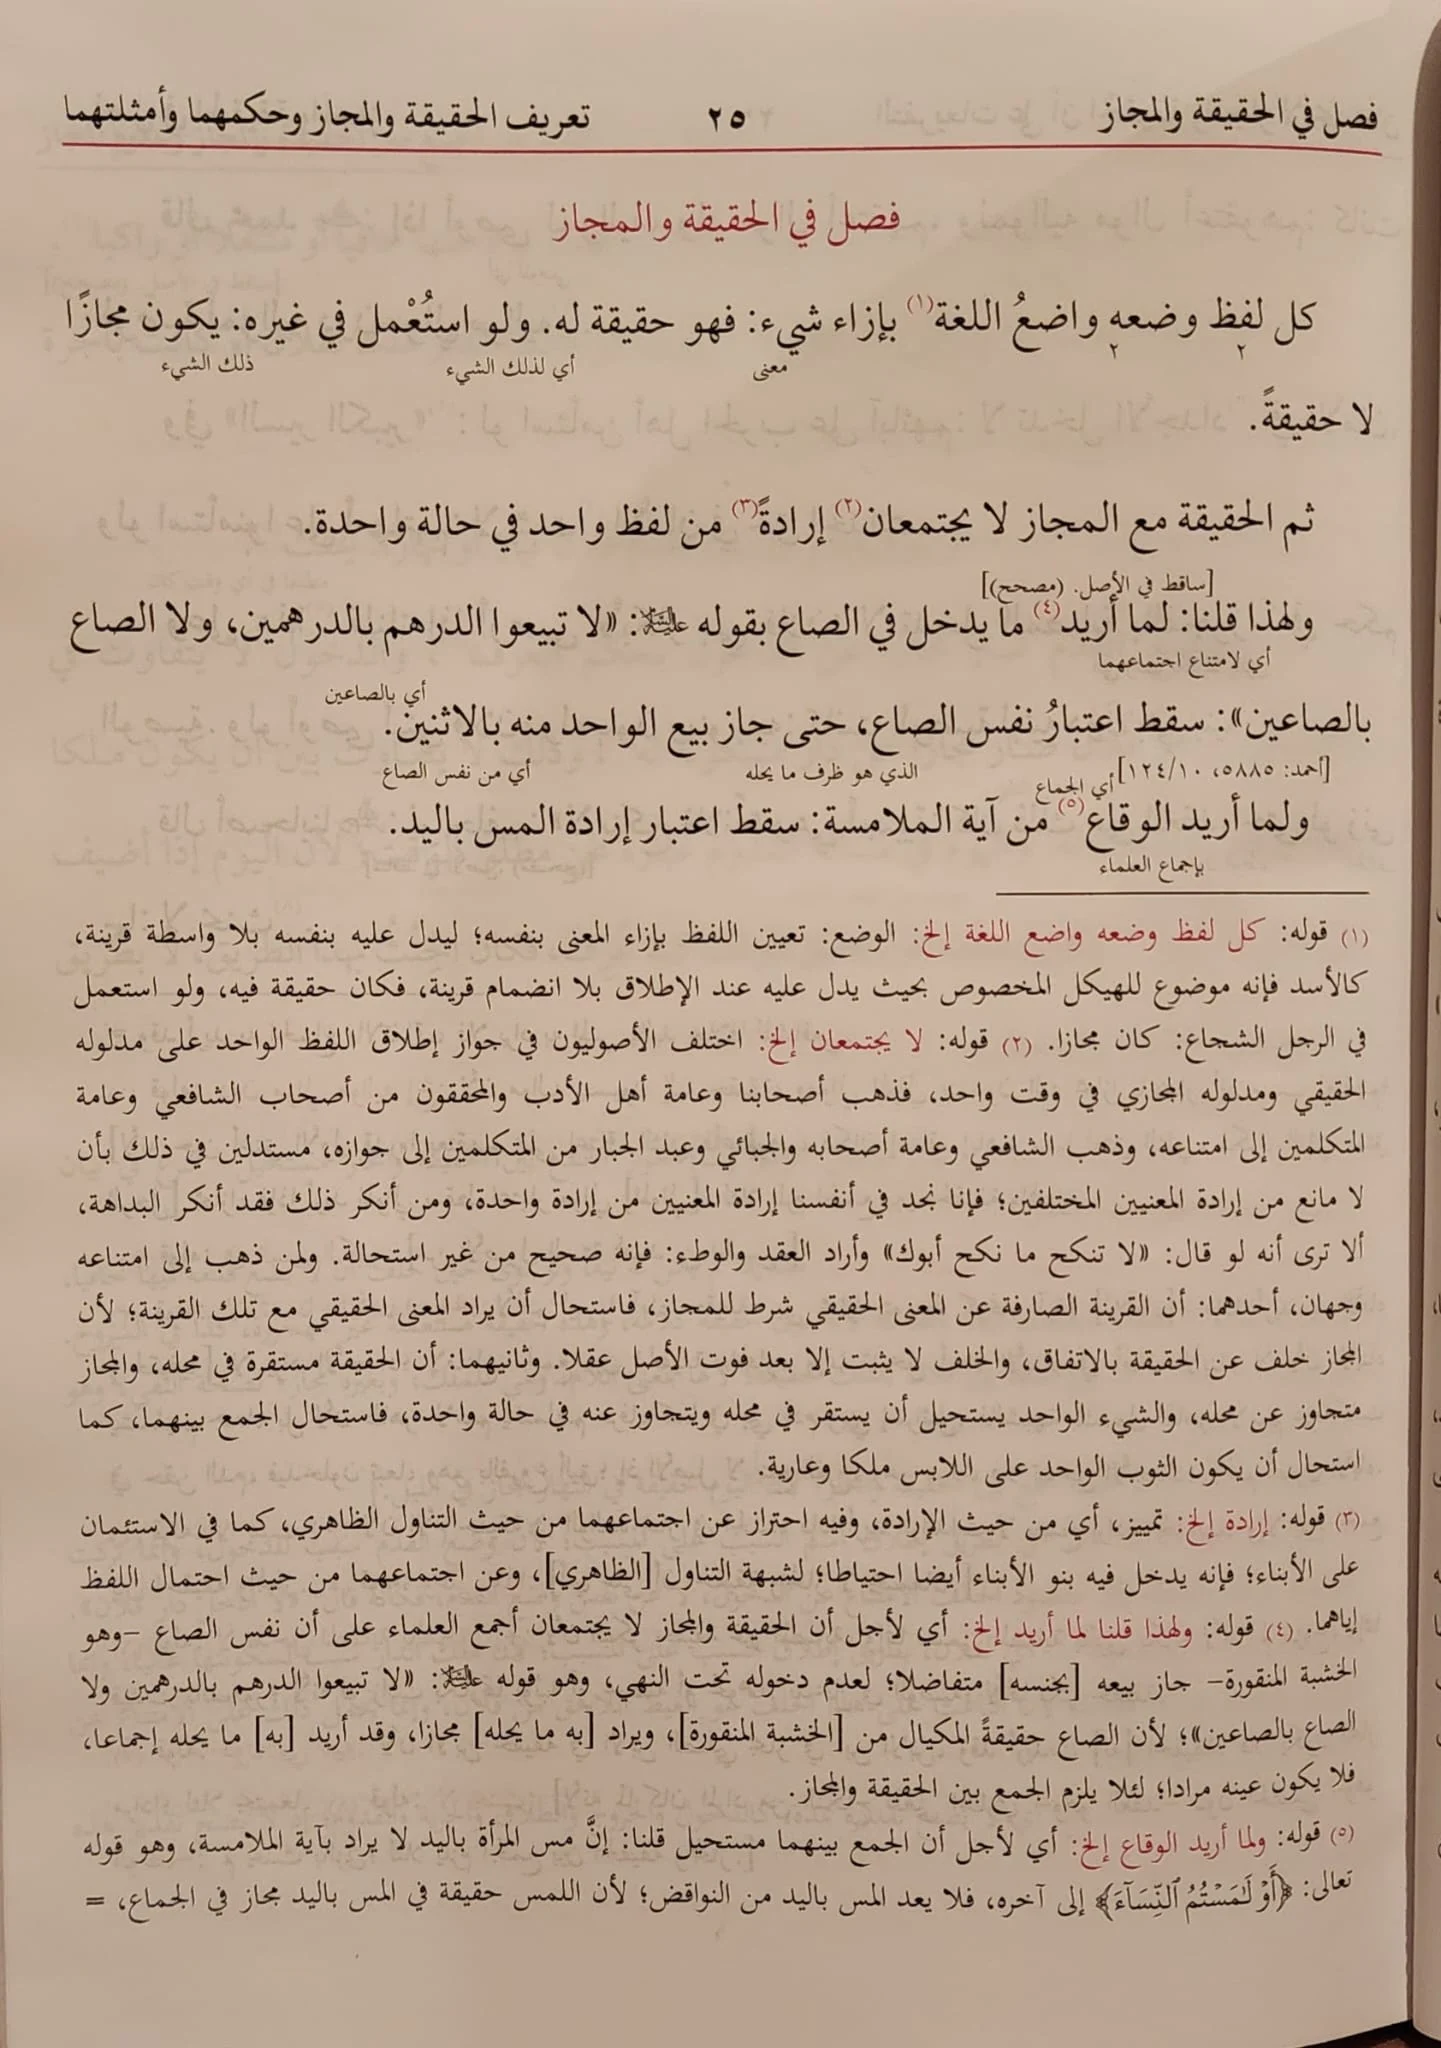 فصل في الحقيقة والمجاز ٢٥ تعريف الحقيقة والمجاز وحكمهما وأمثلتهما
فصل في الحقيقة والمجاز
كل لفظ وضعه واضعُ اللغة(١) بإزاء شيء: فهو حقيقة له. ولو استُعْمل في غيره: يكون مجازًا
٢ ٢ معنى أي لذلك الشيء ذلك الشيء
لا حقيقةً.
ثم الحقيقة مع المجاز لا يجتمعان(٢) إرادةً(٣) من لفظ واحد في حالة واحدة.
[ساقط في الأصل. (مصحح)]
ولهذا قلنا: لما أريد(٤) ما يدخل في الصاع بقوله عليه السلام: «لا تبيعوا الدرهم بالدرهمين، ولا الصاع
أي لامتناع اجتماعهما
أي بالصاعين
بالصاعين»: سقط اعتبارُ نفس الصاع، حتى جاز بيع الواحد منه بالاثنين.
[أحمد: ٥٨٨٥، ١٢٤/١٠] الذي هو ظرف ما يحله أي من نفس الصاع
أي الجماع
ولما أريد الوقاع(٥) من آية الملامسة: سقط اعتبار إرادة المس باليد.
بإجماع العلماء
(١) قوله: كل لفظ وضعه واضع اللغة إلخ: الوضع: تعيين اللفظ بإزاء المعنى بنفسه؛ ليدل عليه بنفسه بلا واسطة قرينة،
كالأسد فإنه موضوع للهيكل المخصوص بحيث يدل عليه عند الإطلاق بلا انضمام قرينة، فكان حقيقة فيه، ولو استعمل
في الرجل الشجاع: كان مجازا. (٢) قوله: لا يجتمعان إلخ: اختلف الأصوليون في جواز إطلاق اللفظ الواحد على مدلوله
الحقيقي ومدلوله المجازي في وقت واحد، فذهب أصحابنا وعامة أهل الأدب والمحققون من أصحاب الشافعي وعامة
المتكلمين إلى امتناعه، وذهب الشافعي وعامة أصحابه والجبائي وعبد الجبار من المتكلمين إلى جوازه، مستدلين في ذلك بأن
لا مانع من إرادة المعنيين المختلفين؛ فإنا نجد في أنفسنا إرادة المعنيين من إرادة واحدة، ومن أنكر ذلك فقد أنكر البداهة،
ألا ترى أنه لو قال: «لا تنكح ما نكح أبوك» وأراد العقد والوطء: فإنه صحيح من غير استحالة. ولمن ذهب إلى امتناعه
وجهان، أحدهما: أن القرينة الصارفة عن المعنى الحقيقي شرط للمجاز، فاستحال أن يراد المعنى الحقيقي مع تلك القرينة؛ لأن
المجاز خلف عن الحقيقة بالاتفاق، والخلف لا يثبت إلا بعد فوت الأصل عقلا. وثانيهما: أن الحقيقة مستقرة في محله، والمجاز
متجاوز عن محله، والشيء الواحد يستحيل أن يستقر في محله ويتجاوز عنه في حالة واحدة، فاستحال الجمع بينهما، كما
استحال أن يكون الثوب الواحد على اللابس ملكا وعارية.
(٣) قوله: إرادة إلخ: تمييز، أي من حيث الإرادة، وفيه احتراز عن اجتماعهما من حيث التناول الظاهري، كما في الاستئمان
على الأبناء؛ فإنه يدخل فيه بنو الأبناء أيضا احتياطا؛ لشبهة التناول [الظاهري]، وعن اجتماعهما من حيث احتمال اللفظ
إياهما. (٤) قوله: ولهذا قلنا لما أريد إلخ: أي لأجل أن الحقيقة والمجاز لا يجتمعان أجمع العلماء على أن نفس الصاع –وهو
الخشبة المنقورة– جاز بيعه [بجنسه] متفاضلا؛ لعدم دخوله تحت النهي، وهو قوله عليه السلام: «لا تبيعوا الدرهم بالدرهمين ولا
الصاع بالصاعين»؛ لأن الصاع حقيقةً المكيال من [الخشبة المنقورة]، ويراد [به ما يحله] مجازا، وقد أريد [به] ما يحله إجماعا،
فلا يكون عينه مرادا؛ لئلا يلزم الجمع بين الحقيقة والمجاز.
(٥) قوله: ولما أريد الوقاع إلخ: أي لأجل أن الجمع بينهما مستحيل قلنا: إنَّ مس المرأة باليد لا يراد بآية الملامسة، وهو قوله
تعالى: ﴿أَوْ لَٰمَسْتُمُ ٱلنِّسَآءَ﴾ إلى آخره، فلا يعد المس باليد من النواقض؛ لأن اللمس حقيقة في المس باليد مجاز في الجماع، =